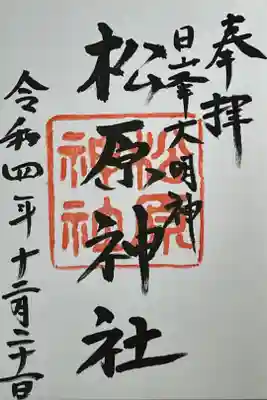 奉拝
日峯大明神
松原神社
令和四年十二月二十一日